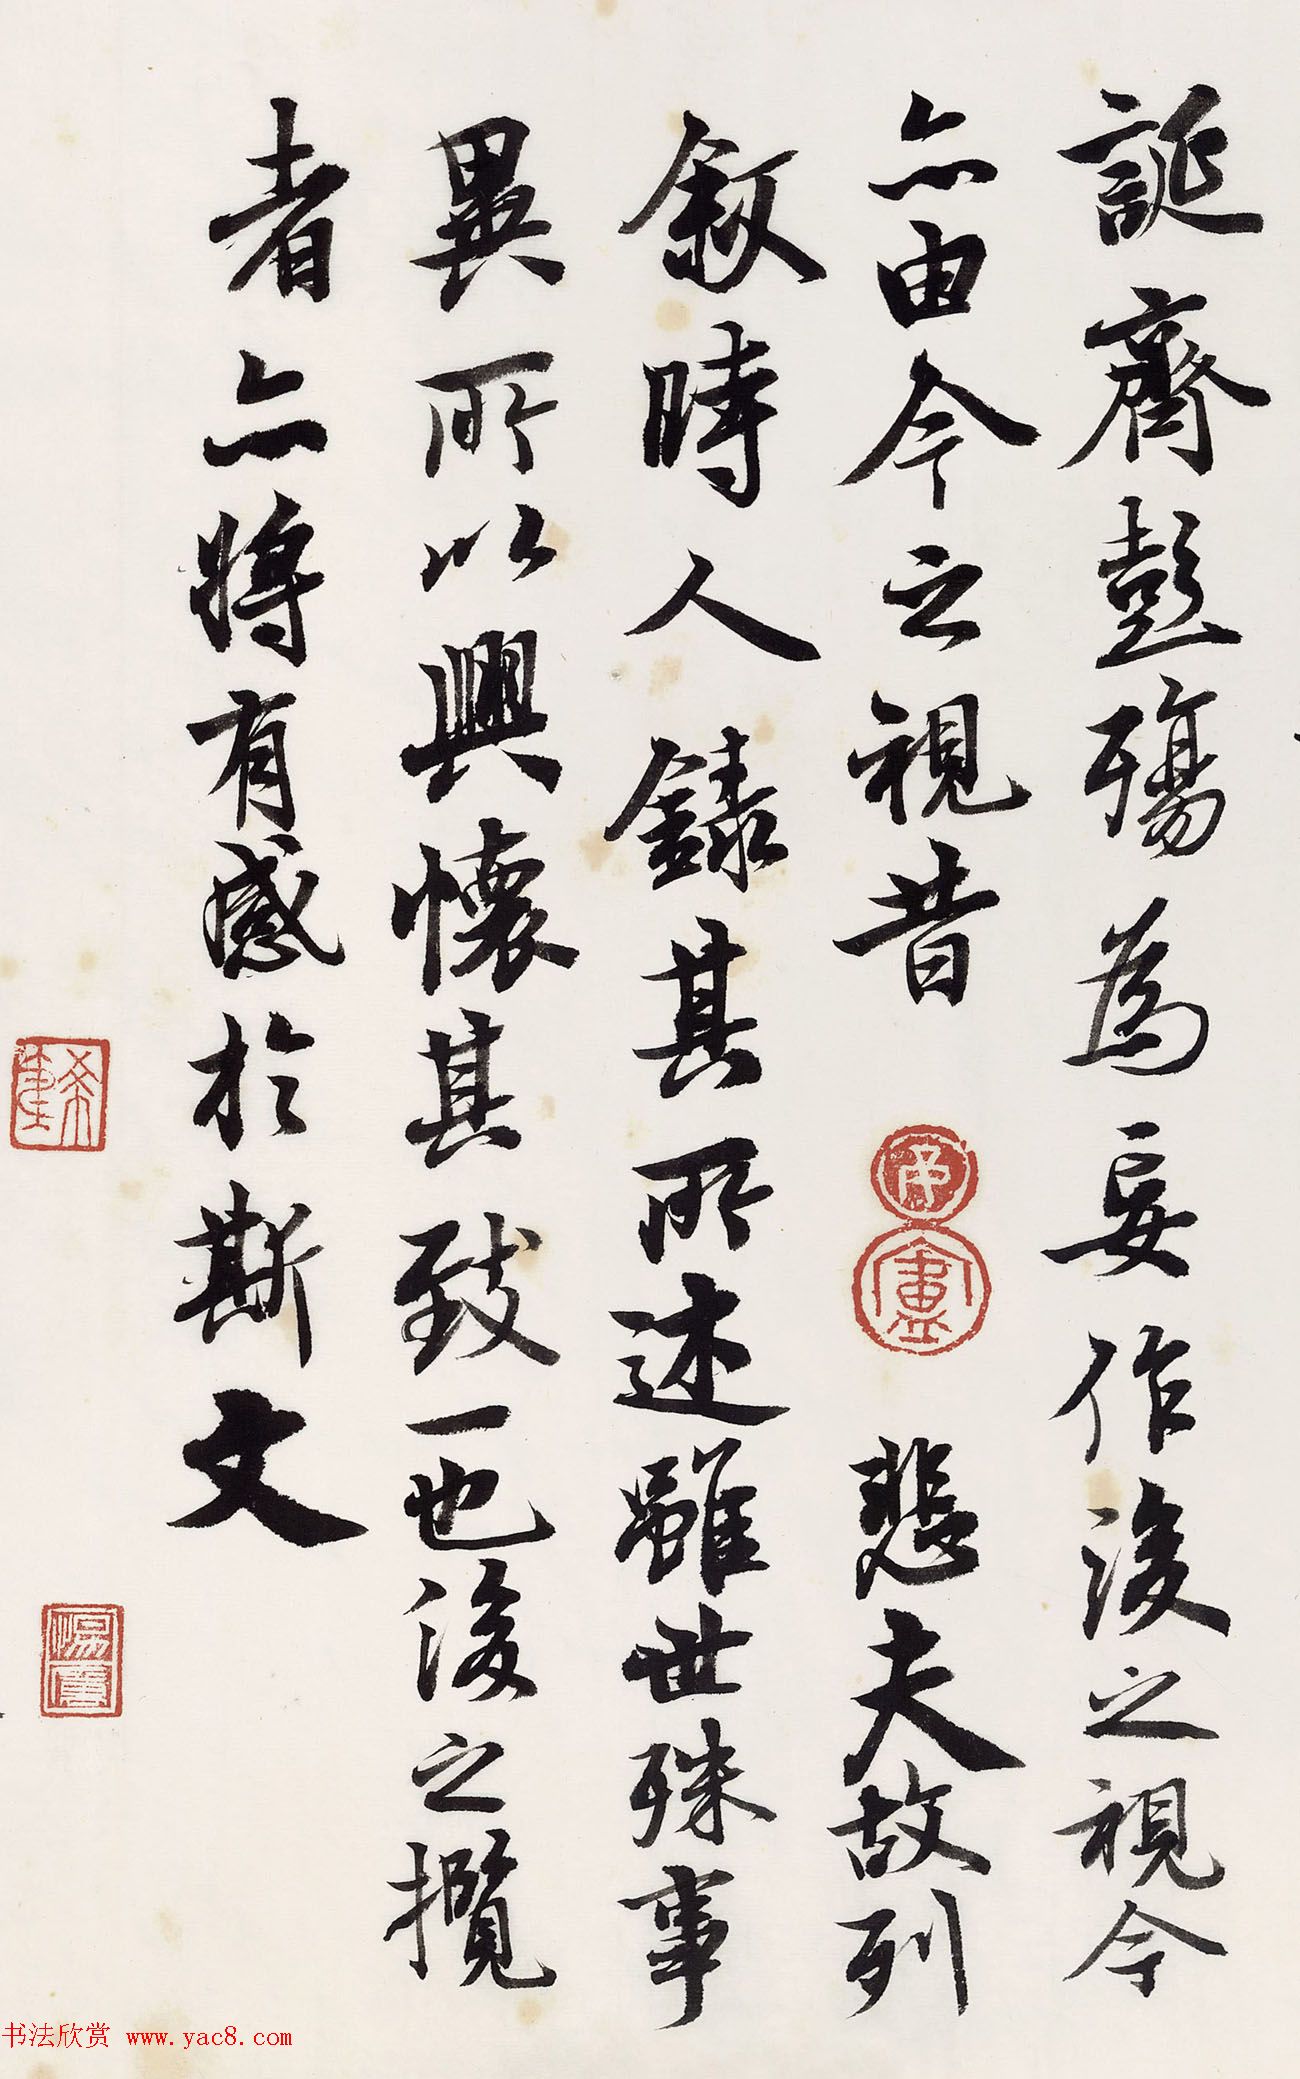 誕齊彭殤爲妄作後之視今
亦由今之視昔 悲夫故列
叙時人録其所述雖世殊事
異所以興懷其致一也後之攬
者亦將有感於斯文
书法欣赏 www.yac8.com